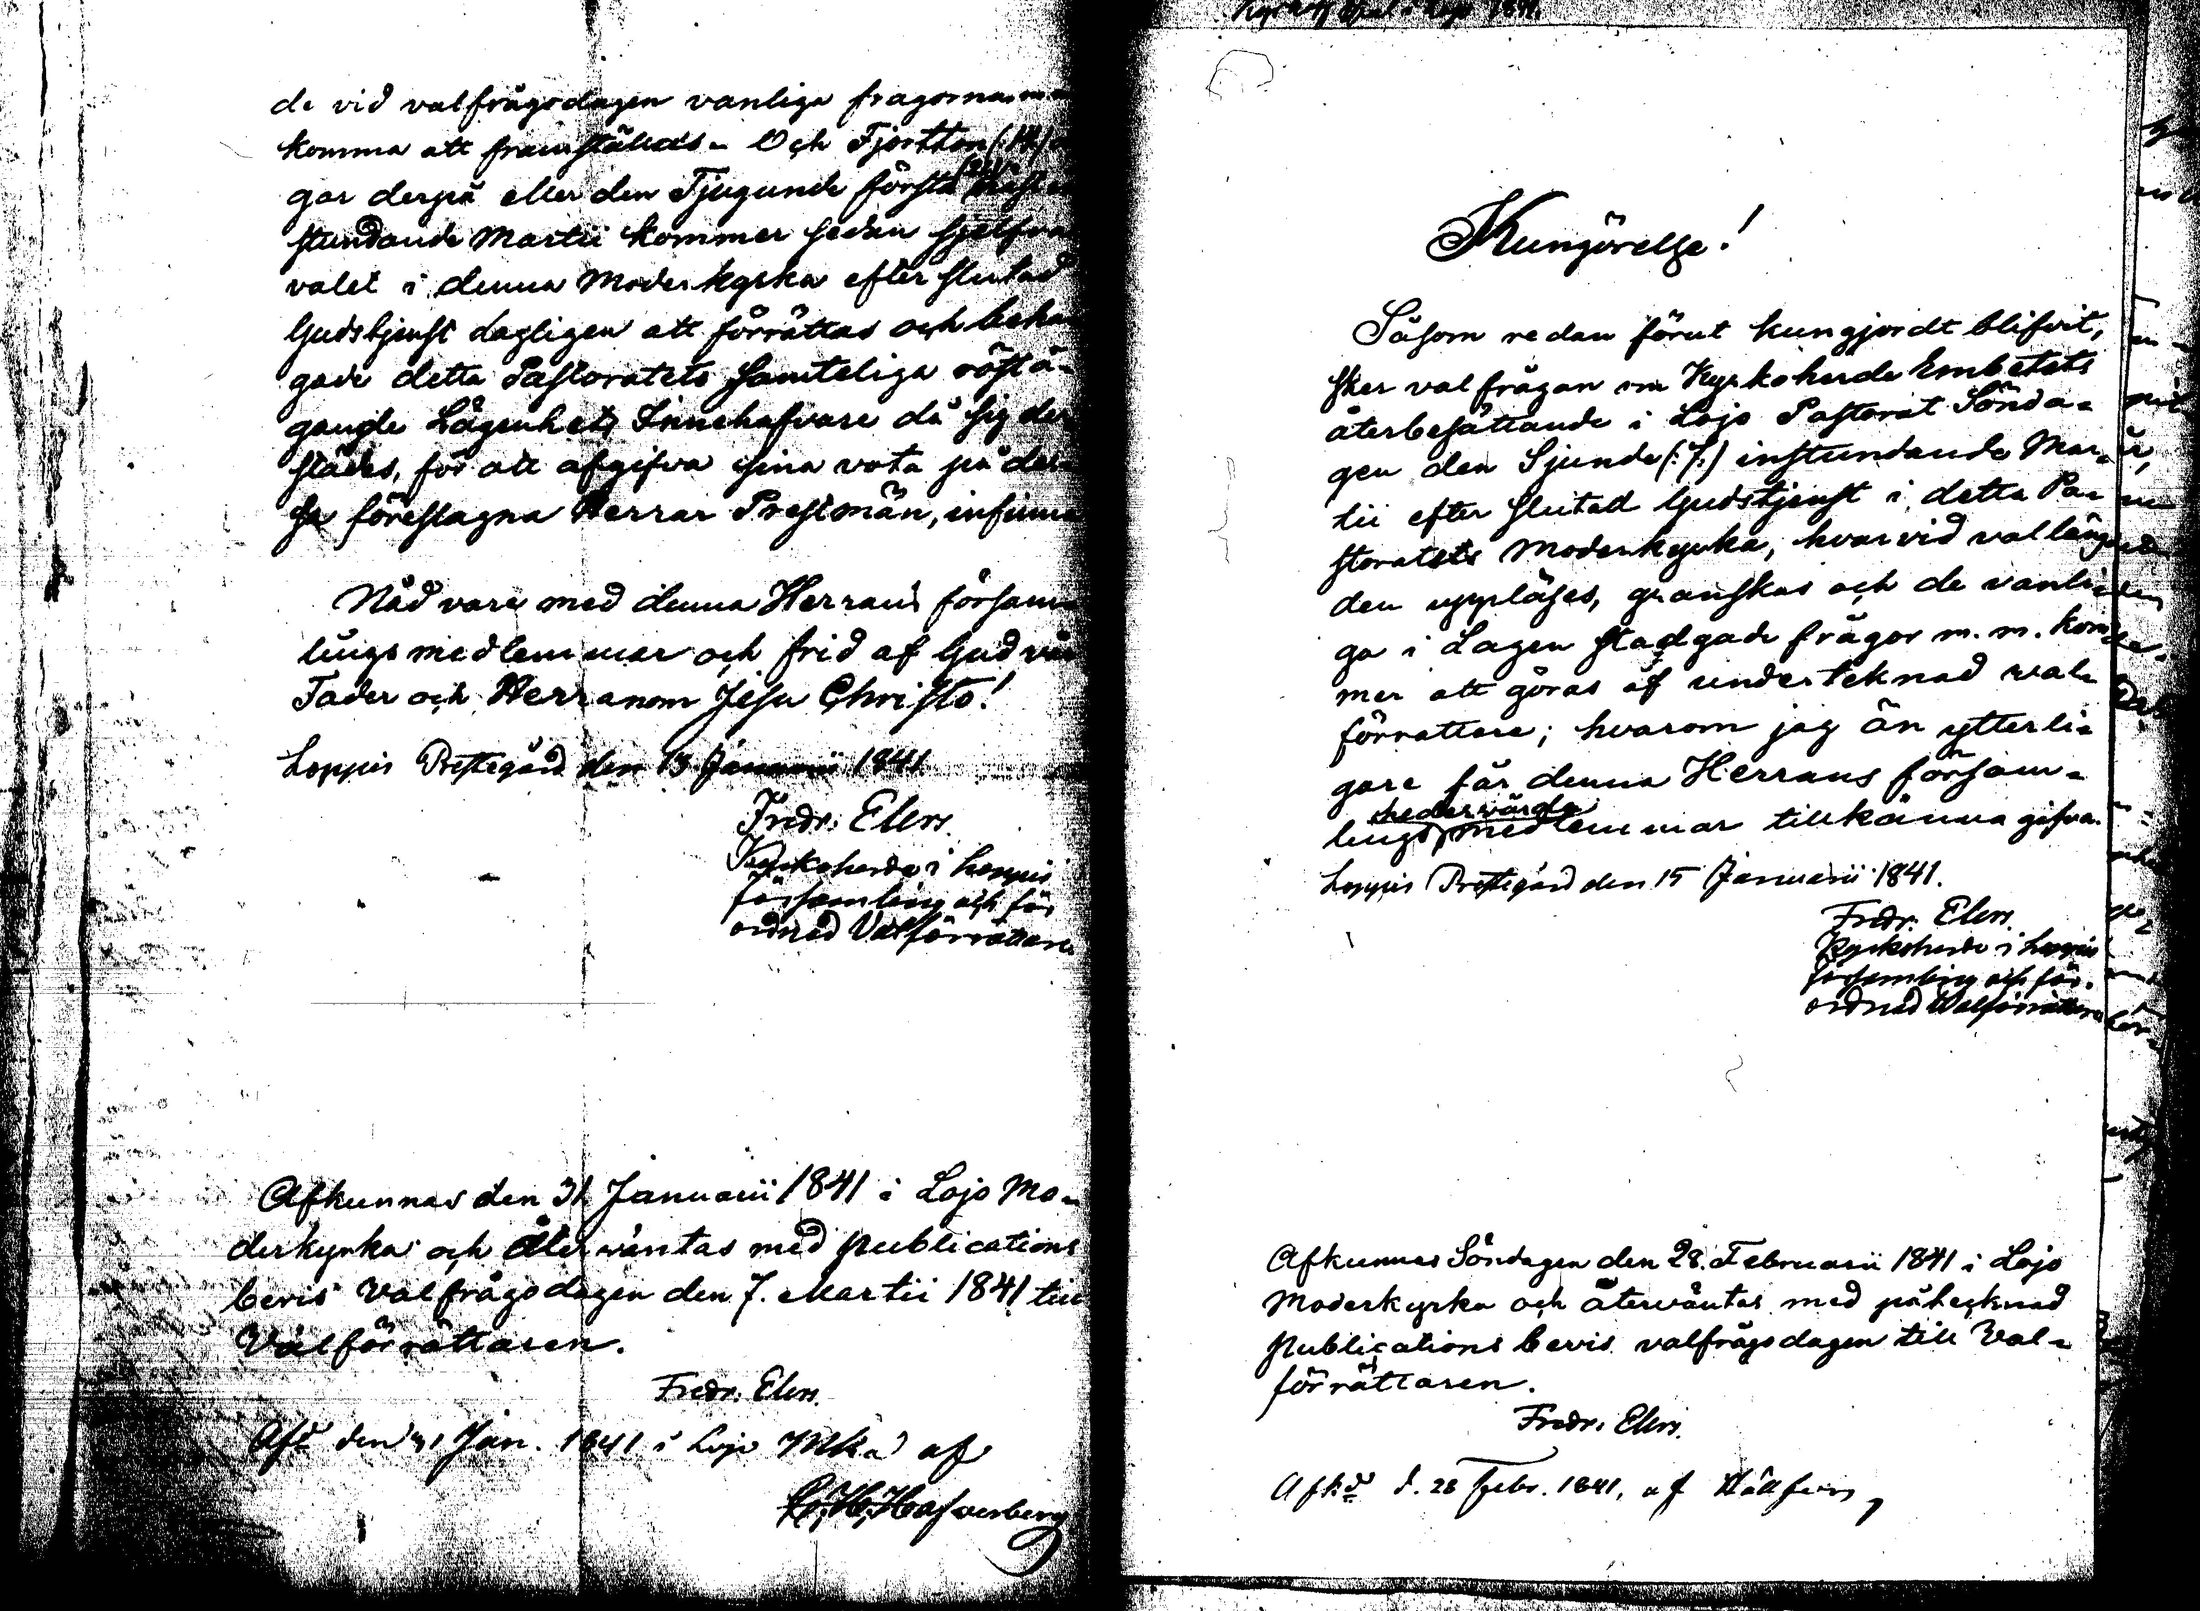 de vid valfrågodagen vanliga frågorna
komma att framställas. Och Fjortton (:14:)
gar derpå eller den Tjugunde första (:21:) näst
stundande Martii kommer sedan sjelfva
valet i denna Moderkyrka efter slutad
Gudstjenst Lagligen att förrättas och beha
gade detta Pastoratets samteliga röstä-
gande Lägenhets Innehafvare då sig der
städes, för att afgifva sina vota på des-
sa föreslagna Herrar Prestmän, infinna
Nåd vare med denna Herrans försam
lings medlemmar och frid af Gud vår
Fader och Herranom Jesu Christo!
Loppis Prestegård den 15 Januarii 1841
Fredr. Elers.
Kyrkoherde i Loppis
församling och för
ordnad Valförrättare.
Afkunnas den 31 Januarii 1841 i Lojo Mo-
derkyrka och återwäntas med publications
bevis Valfrågodagen den 7. Martii 1841 till
Valförrättaren.
Fredr. Elers.
Afk:d den 31 Jan. 1841 i Lojo Mka af
Kungörelse!
Såsom redan förut kungjordt blifvit,
sker valfrågan om Kyrkoherde Embetets
återbesättande i Lojo Pastorat Sönda-
gen den Sjunde (:7:) instundande Mar-
tii efter slutad Gudstjenst i detta Pa-
storatets Moderkyrka, hvarvid valläng
den uppläses, granskas och de vanli-
ga i Lagen stadgade frågor m. m. kom-
mer att göras af undertecknad val-
förrattare; hvarom jag än ytterli-
gare får denna Herrans försam-
hedervärda
lings medlemmar tillkänna gifva.
Loppis Prestegård den 15 Januarii 1841.
Fredr. Elers.
Kyrkoherde i Loppis
församling och för-
ordnad Valförrättare
Afkunnas Söndagen den 28. Februarii 1841 i Lojo
Moderkyrka och återwäntas med påtecknad
Publications bevis valfrågodagen till Val-
förrättaren.
Fredr. Elers.
Afk:d d. 28 Febr. 1841, af Hällfors